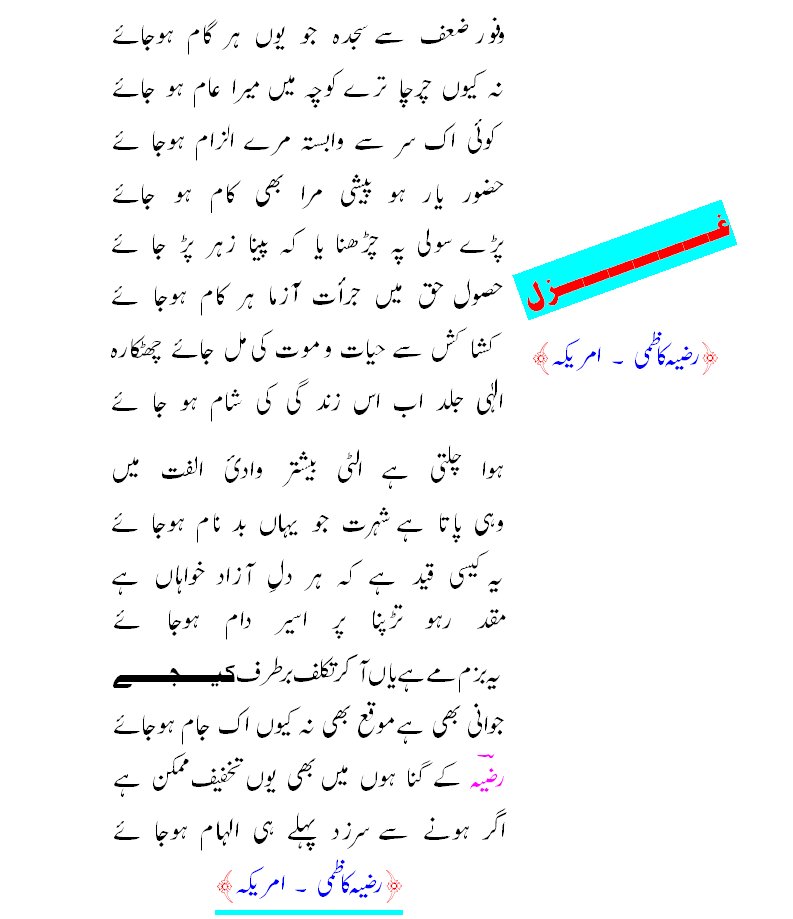 غزل
﴿رضیہ کاظمی ۔ امریکہ﴾
وفور ضعف سے سجدہ جو یوں ہر گام ہوجائے
نہ کیوں چرچا ترے کوچہ میں میرا عام ہو جائے
کوئی اک سر سے وابستہ مرے الزام ہوجائے
حضور یار ہو پیشی مرا بھی کام ہو جائے
پڑے سولی پہ چڑھنا یا کہ پینا زہر پڑ جائے
حصول حق میں جرأت آزما ہر کام ہوجائے
کشا کش سے حیات و موت کی مل جائے چھٹکارہ
الٰہی جلد اب اس زندگی کی شام ہو جائے
ہوا چلتی ہے الٹی بیشتر وادئ الفت میں
وہی پاتا ہے شہرت جو یہاں بد نام ہوجائے
یہ کیسی قید ہے کہ ہر دلِ آزاد خواہاں ہے
مقدر ہو تڑپنا پر اسیر دام ہوجائے
یہ بزم مے ہے یاں آ کر تکلف برطرف کیجے
جوانی بھی ہے موقع بھی نہ کیوں اک جام ہوجائے
رضیہؔ کے گناہوں میں بھی یوں تخفیف ممکن ہے
اگر ہونے سے سرزد پہلے ہی الہام ہوجائے
﴿رضیہ کاظمی ۔ امریکہ﴾